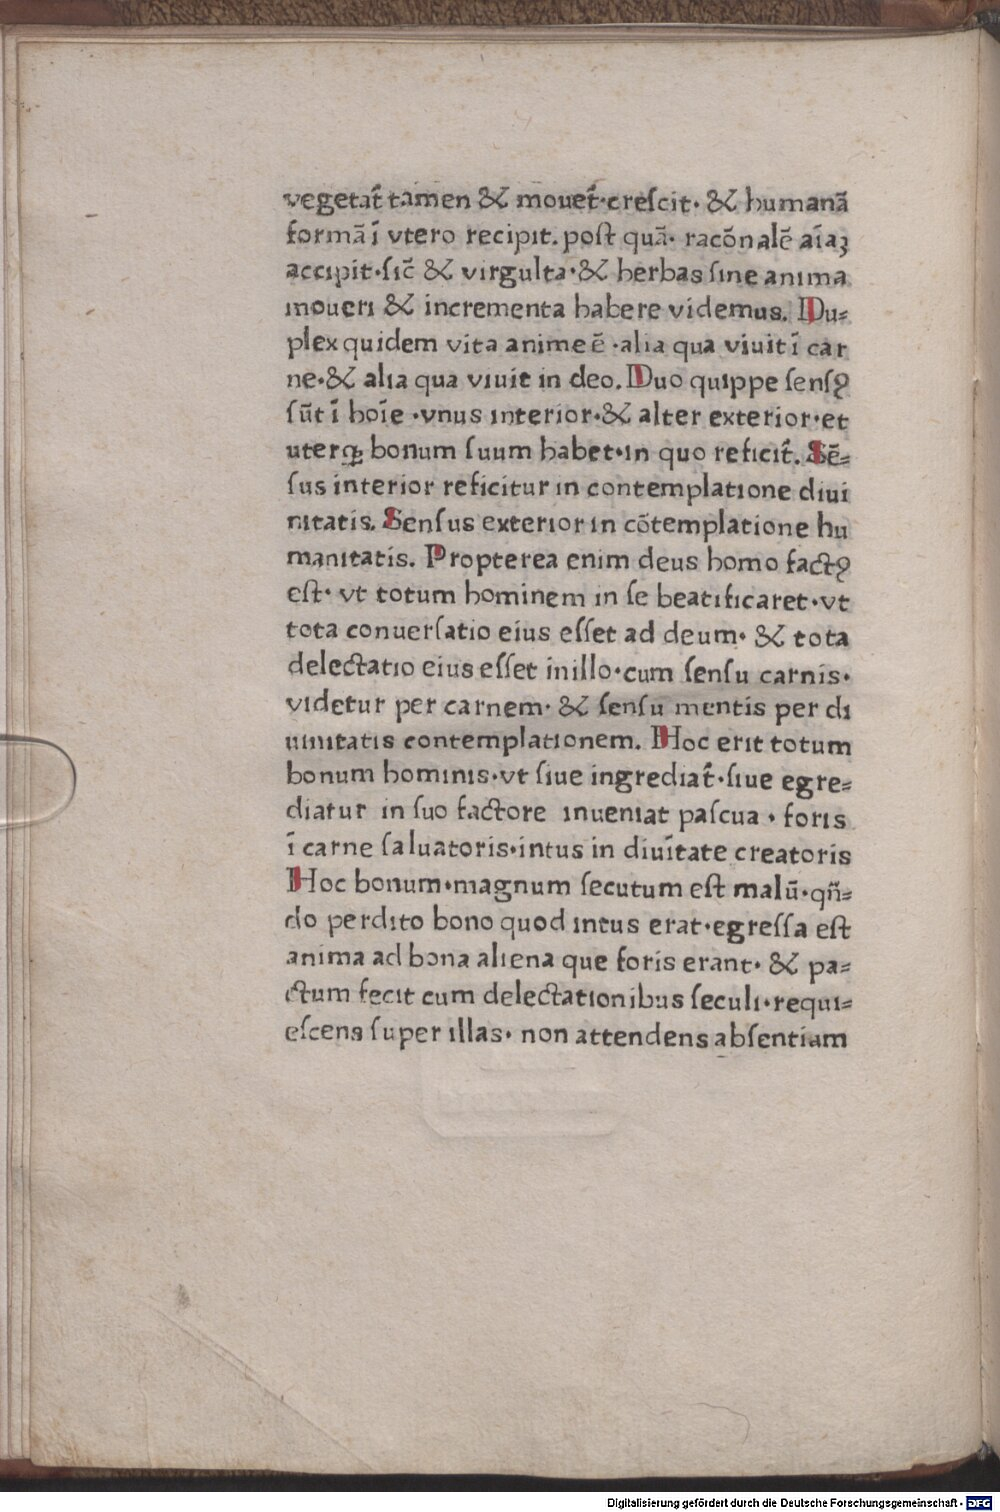 vegetat᷑ tamen & mouet᷑·creſcit· & humanā
formā ī vtero recipit. poſt quā· racōnalē aīaꝫ
accipit·ſic̄ & virgulta·& herbas ſine anima
moueri & incrementa habere videmus. Du⸗
plex quidem vita anime ē ·alia qua viuit ī car
ne·& alia qua viuit in deo. Duo quippe ſenſꝰ
ſūt ī hoīe ·vnus interior·& alter exterior·et
uterqꝫ bonum ſuum habet·in quo reficit᷑. Sē⸗
ſus interior reficitur in contemplatione diui
nitatis. Senſus exterior in cōtemplatione hu
manitatis. Propterea enim deus homo factꝰ
eſt· vt totum hominem in ſe beatificaret·vt
tota conuerſatio eius eſſet ad deum· & tota
delectatio eius eſſet inillo·cum ſenſu carnis·
videtur per carnem· & ſenſu mentis per di
uinitatis contemplationem. Hoc erit totum
bonum hominis·vt ſiue ingrediat᷑·ſiue egre⸗
diatur in ſuo factore inueniat paſcua · foris
ī carne ſaluatoris·intus in diuītate creatoris
Hoc bonum·magnum ſecutum eſt malū·qn̄⸗
do perdito bono quod intus erat·egreſſa eſt
anima ad bona aliena que foris erant· & pa⸗
ctum fecit cum delectationibus ſeculi·requi⸗
eſcens ſuper illas· non attendens abſentiam
Digitalisierung gefördert durch die Deutsche Forschungsgemeinschaft - DFG